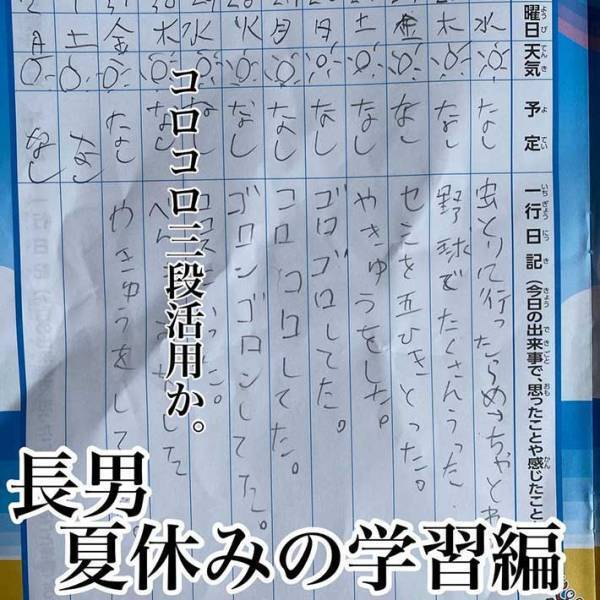 曜日
天気
予定
一行日記(今日の出来事で、思ったことや感じたこと
水
なし
虫とりに行ったらめっちゃとれ
木
なし
野球でたくさんうった
金
なし
セミを五ひきとった。
土
なし
やきゅうをした。
日
なし
ゴロゴロしてた。
月
なし
コロコロしてた。
なし
ゴロンゴロンしてた。
水
な
木
なし
金
なし
やきゅうをして
土
なし
月
なし
コロコロ三段活用か。
長男
夏休みの学習編